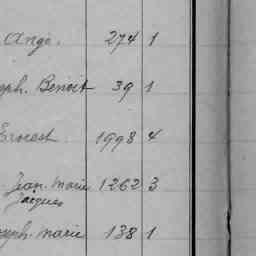 Ange. 274 1
eph. Benoit 39 1
Ernest 1998 4
Jean. Marie 1262 3
Jacques
seph. Marie 138 1